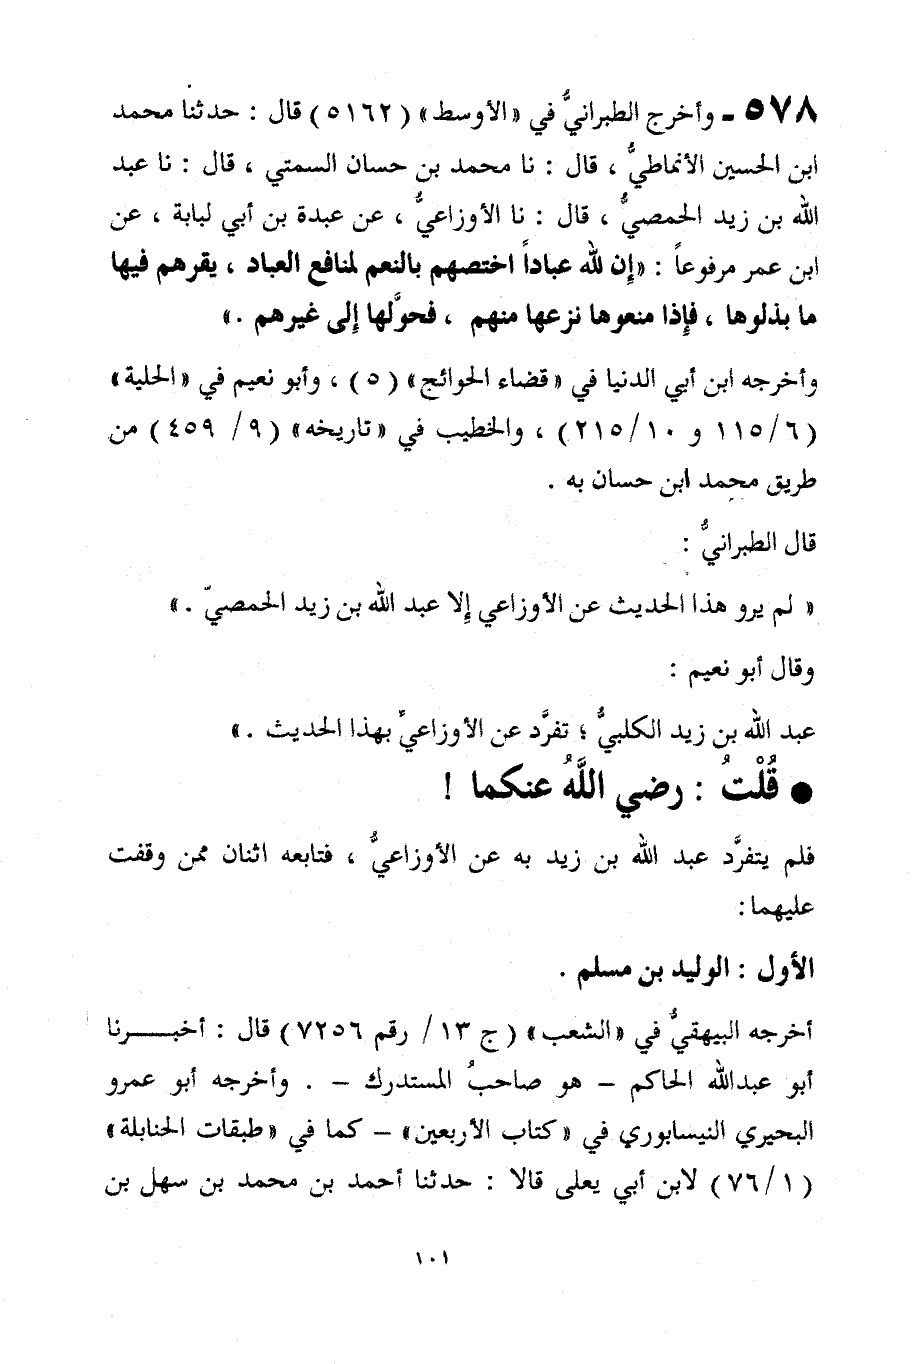 ٥٧٨ - وأخرج الطبرانيُّ في «الأوسط» (٥١٦٢) قال : حدثنا محمد
ابن الحسين الأنماطيُّ ، قال : نا محمد بن حسان السمتي ، قال : نا عبد
الله بن زيد الحمصيُّ ، قال : نا الأوزاعيُّ ، عن عبدة بن أبي لبابة ، عن
ابن عمر مرفوعاً : «إن لله عباداً اختصهم بالنعم لمنافع العباد ، يقرهم فيها
ما بذلوها ، فإذا منعوها نزعها منهم ، فحوَّلها إلى غيرهم .»
وأخرجه ابن أبي الدنيا في «قضاء الحوائج» (٥) ، وأبو نعيم في «الحلية»
(٦/ ١١٥ و ١٠/ ٢١٥) ، والخطيب في «تاريخه» (٩/ ٤٥٩) من
طريق محمد ابن حسان به .
قال الطبرانيُّ :
« لم يرو هذا الحديث عن الأوزاعي إلا عبد الله بن زيد الحمصيّ .»
وقال أبو نعيم :
عبد الله بن زيد الكلبيُّ ؛ تفرَّد عن الأوزاعيِّ بهذا الحديث .»
● قُلْتُ : رضي اللَّهُ عنكما !
فلم يتفرَّد عبد الله بن زيد به عن الأوزاعيُّ ، فتابعه اثنان ممن وقفت
عليهما :
الأول : الوليد بن مسلم .
أخرجه البيهقيُّ في «الشعب» (ج ١٣/ رقم ٧٢٥٦) قال : أخبـــرنا
أبو عبدالله الحاكم – هو صاحبُ المستدرك – . وأخرجه أبو عمرو
البحيري النيسابوري في «كتاب الأربعين» – كما في «طبقات الحنابلة»
(١/ ٧٦) لابن أبي يعلى قالا : حدثنا أحمد بن محمد بن سهل بن
١٠١